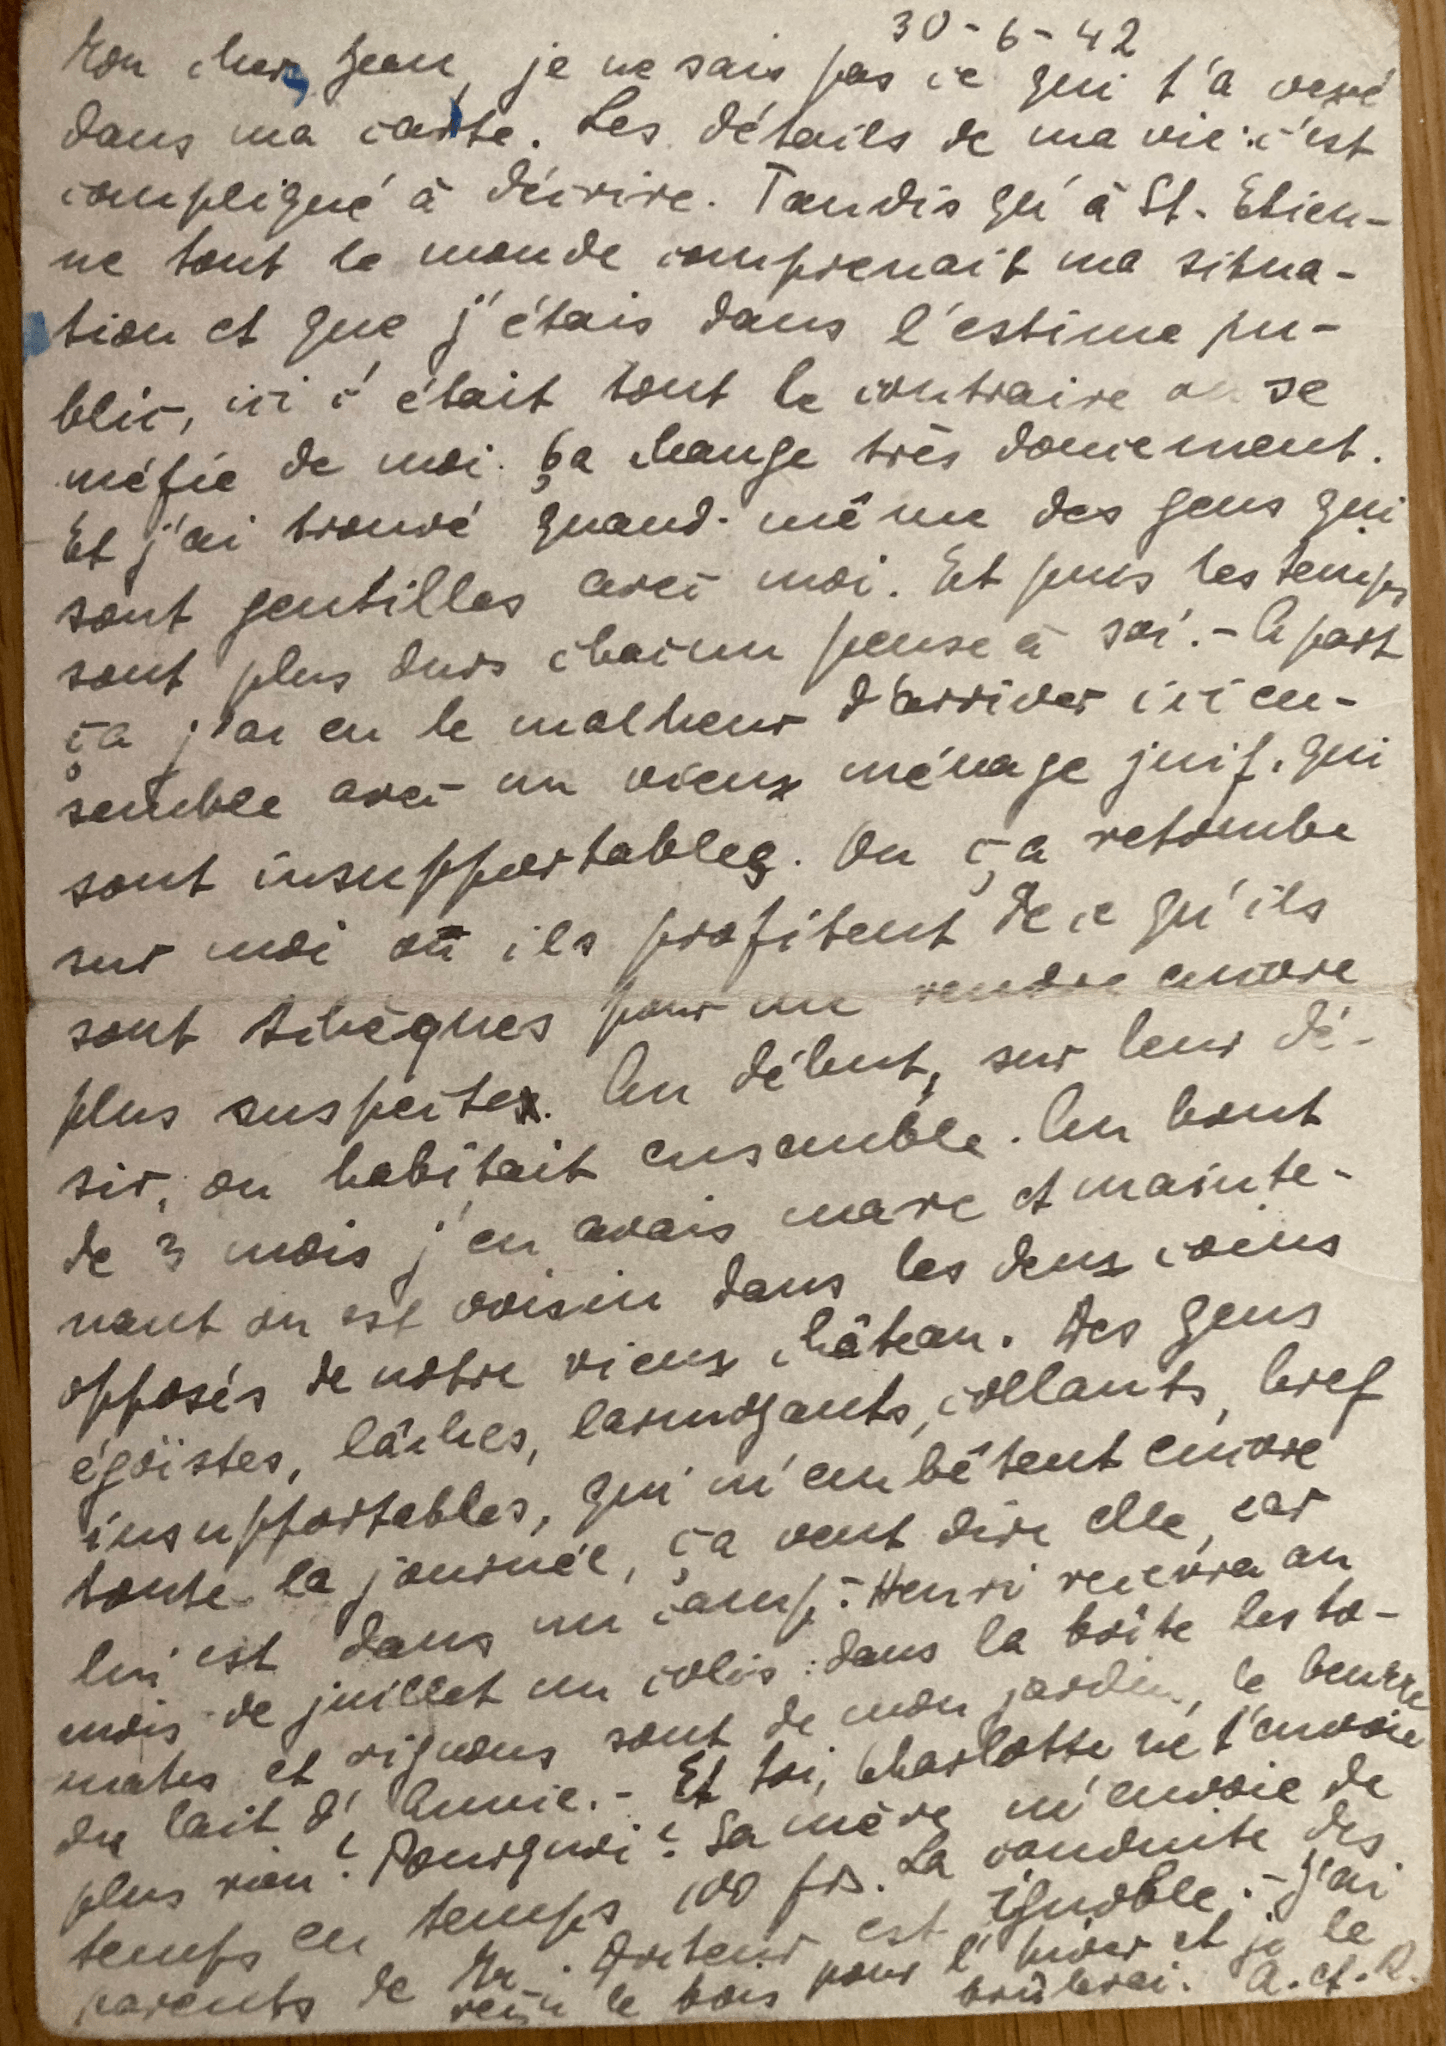 30-6-42
Mon cher Jean, je ne sais pas ce qui t'a vexé
dans ma carte. Les détails de ma vie : c'est
compliqué à décrire. Tandis qu'à St. Etien-
ne tout le monde comprenait ma situa-
tion et que j'étais dans l'estime pu-
blic, ici c'était tout le contraire on se
méfie de moi. Ça change très doucement.
Et j'ai trouvé quand-même des gens qui
sont gentilles avec moi. Et puis les temps
sont plus durs chacun pense à soi. - A part
ça j'ai eu le malheur d'arriver ici en-
semble avec un vieux ménage juif, qui
sont insupportables. Ou ça retombe
sur moi ou ils profitent de ce qu'ils
sont tchèques pour me rendre encore
plus suspecte. Au début, sur leur dé-
sir, on habitait ensemble. Au bout
de 3 mois j'en avais marre et mainte-
nant on est voisin dans les deux coins
opposés de notre vieux château. Des gens
égoïstes, lâches, larmoyants, collants, bref
insupportables, qui m'embêtent encore
toute la journée, ça veut dire elle, car
lui est dans un camp. - Henri recevra au
mois de juillet un colis : dans la boîte les to-
mates et oignons sont de mon jardin, le beurre
du lait d'Annie. - Et toi, Charlotte ne t'envoie
plus rien ? Pourquoi ? Sa mère m'envoie de
temps en temps 100 frs. La conduite des
parents de Mr. est ignoble. - J'ai
reçu le bois pour l'hiver et je le
brûlerai. A. et. R.